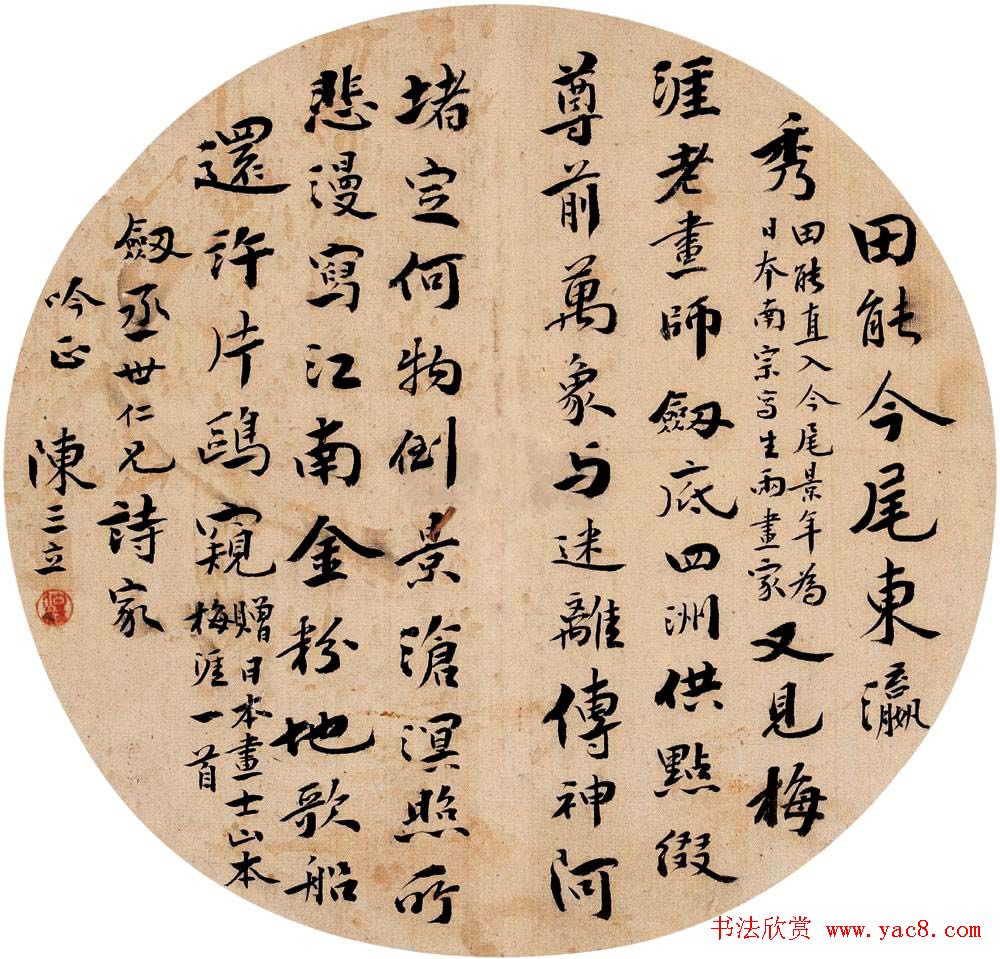 田能今尾東瀛
秀
田能直入今尾景年為
日本南宗寫生兩畫家
又見梅
涯老畫師劔底四洲供點綴
尊前萬象與迷離傳神阿
堵定何物倒景滄溟照所
悲漫寫江南金粉地歌船
還許片鷗窺
贈日本畫士山本
梅涯一首
劔丞世仁兄詩家
吟正
陳三立
书法欣赏 www.yac8.com